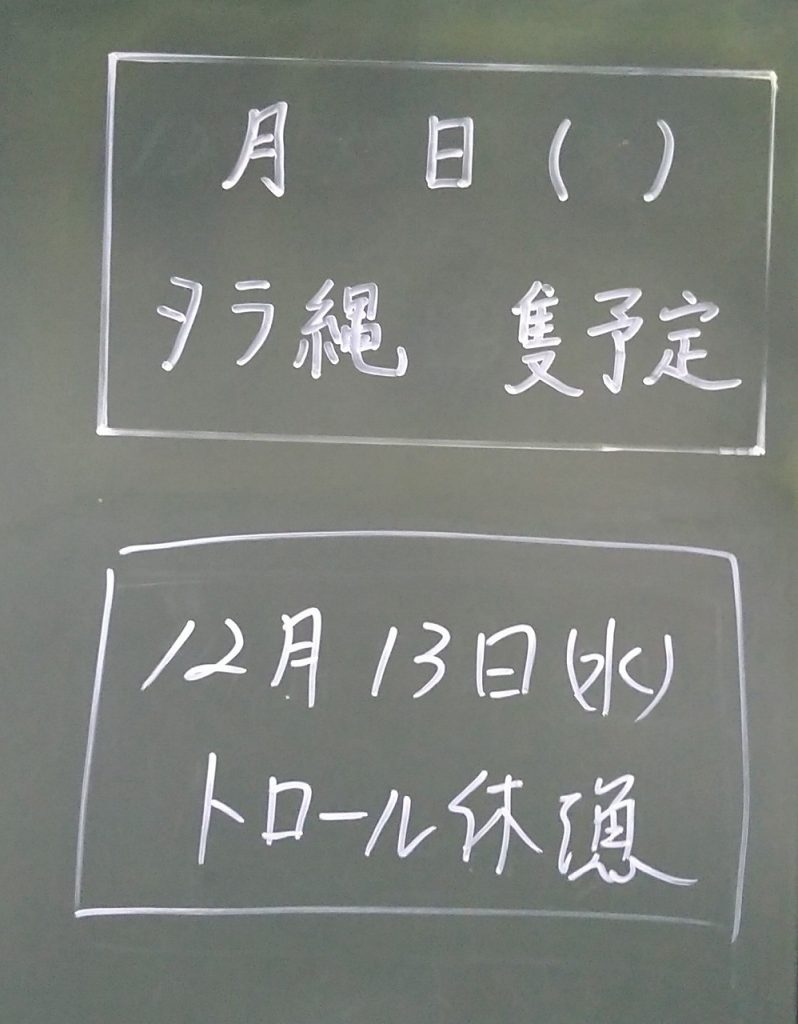 月 日( )
タラ縄 隻予定
12月13日(水)
トロール休漁